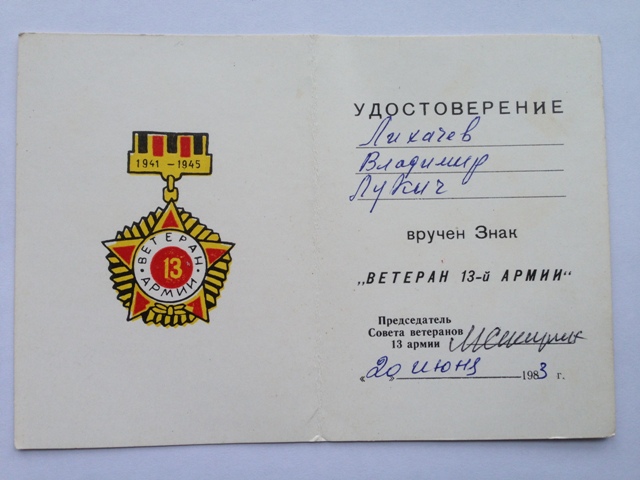 1941 - 1945
ВЕТЕРАН
13
АРМИИ
УДОСТОВЕРЕНИЕ
Лихачев
Владимир
Лукич
вручен Знак
„ВЕТЕРАН 13-й АРМИИ“
Председатель
Совета ветеранов
13 армии
«20» июня 1983 г.